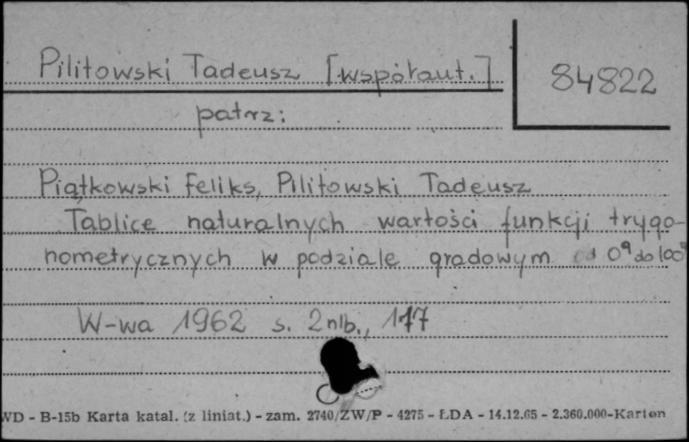 Pilitowski Tadeusz [współaut.]
84822
patrz:
Piątkowski Feliks, Pilitowski Tadeusz
Tablice naturalnych wartości funkcji trygo-
nometrycznych w podziale gradowym od 0g do 100g
W-wa 1962 s. 2nlb., 177
WD - B-15b Karta katal. (z liniat.) - zam. 2740/ZW/P - 4275 - ŁDA - 14.12.65 - 2.360.000-Karton